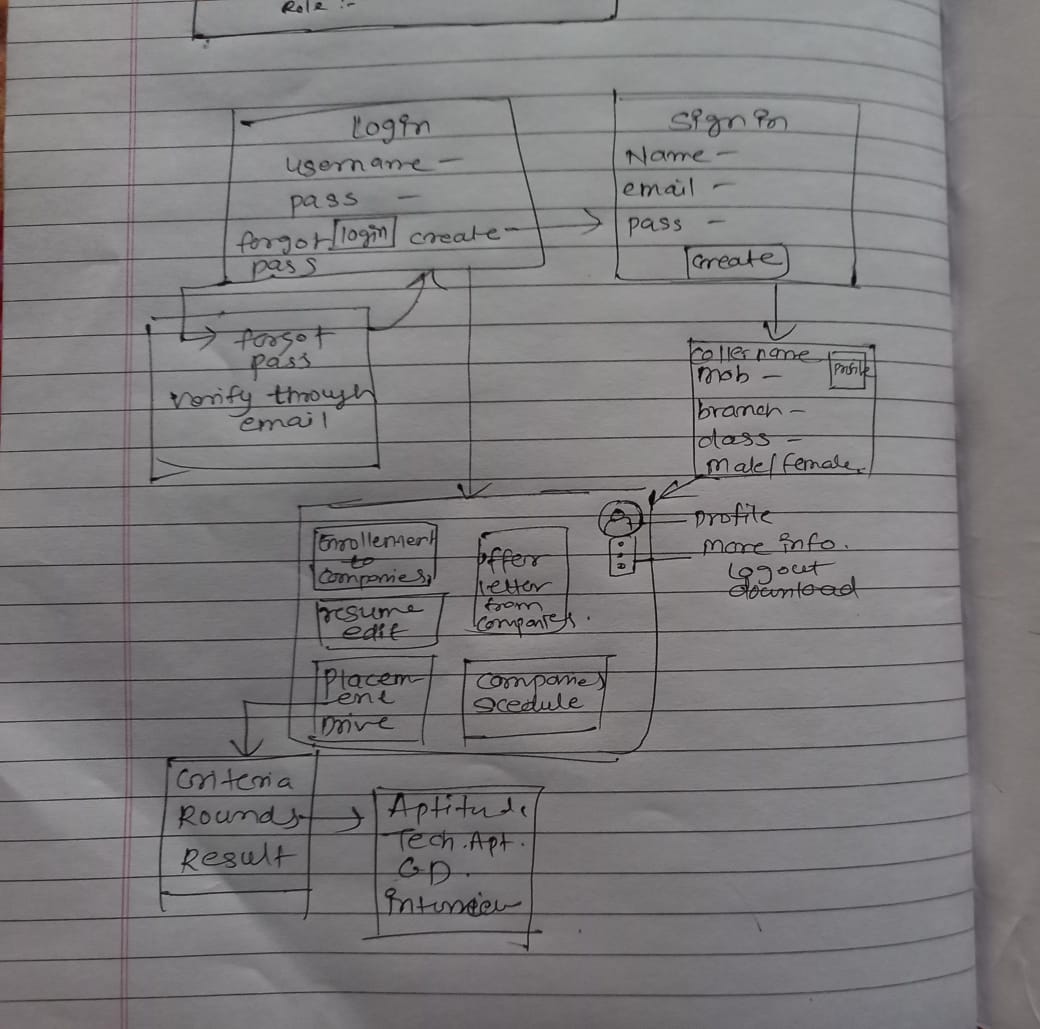 Role :-
Login
username -
pass -
forgot login create
pass
Sign in
Name -
email -
pass -
Create
forgot
pass
verify through
email
mob -
profile
branch -
class -
male/female.
Enrollement
to
companies,
offer
letter
from
companies.
resume
edit
Placem
ent
Drive
companies
scedule
profile
more info.
logout
download
Criteria
Rounds
Result
Aptitude
Tech. Apt.
GD.
interview